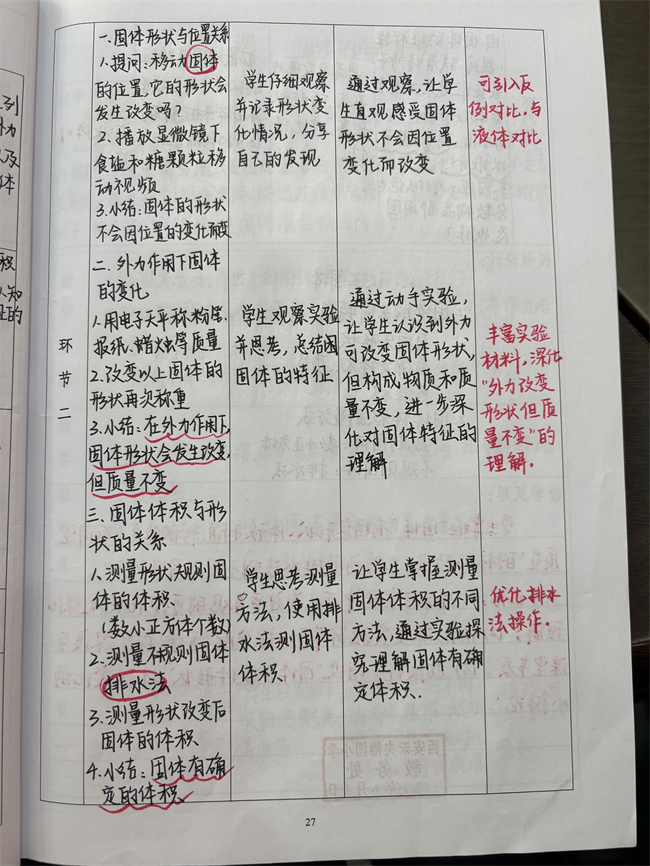 环节二
一.固体形状与位置关系
1.提问:移动固体
的位置,它的形状会
发生改变吗?
2.播放显微镜下
食盐和糖颗粒移
动视频
3.小结:固体的形状
不会因位置的变化而变
学生仔细观察
并记录形状变
化情况,分享
自己的发现
通过观察,让学
生直观感受固体
形状不会因位置
变化而改变
可引入反
例对比,与
液体对比
二.外力作用下固体
的变化
1.用电子天平称粉笔、
报纸、蜡烛等质量
2.改变以上固体的
形状再次称重
3.小结:在外力作用下,
固体形状会发生改变,
但质量不变
学生观察实验
并思考,总结
固体的特征
通过动手实验,
让学生认识到外力
可改变固体形状,
但构成物质和质
量不变,进一步深
化对固体特征的
理解
丰富实验
材料,深化
“外力改变
形状但质
量不变”的
理解。
三.固体体积与形
状的关系
1.测量形状规则固
体的体积
(数小正方体个数)
2.测量不规则固体
排水法
3.测量形状改变后
固体的体积
4.小结:固体有确
定的体积
学生思考测量
方法,使用排
水法测固体
体积.
让学生掌握测量
固体体积的不同
方法,通过实验探
究理解固体有确
定体积.
优化排水
法操作.
27